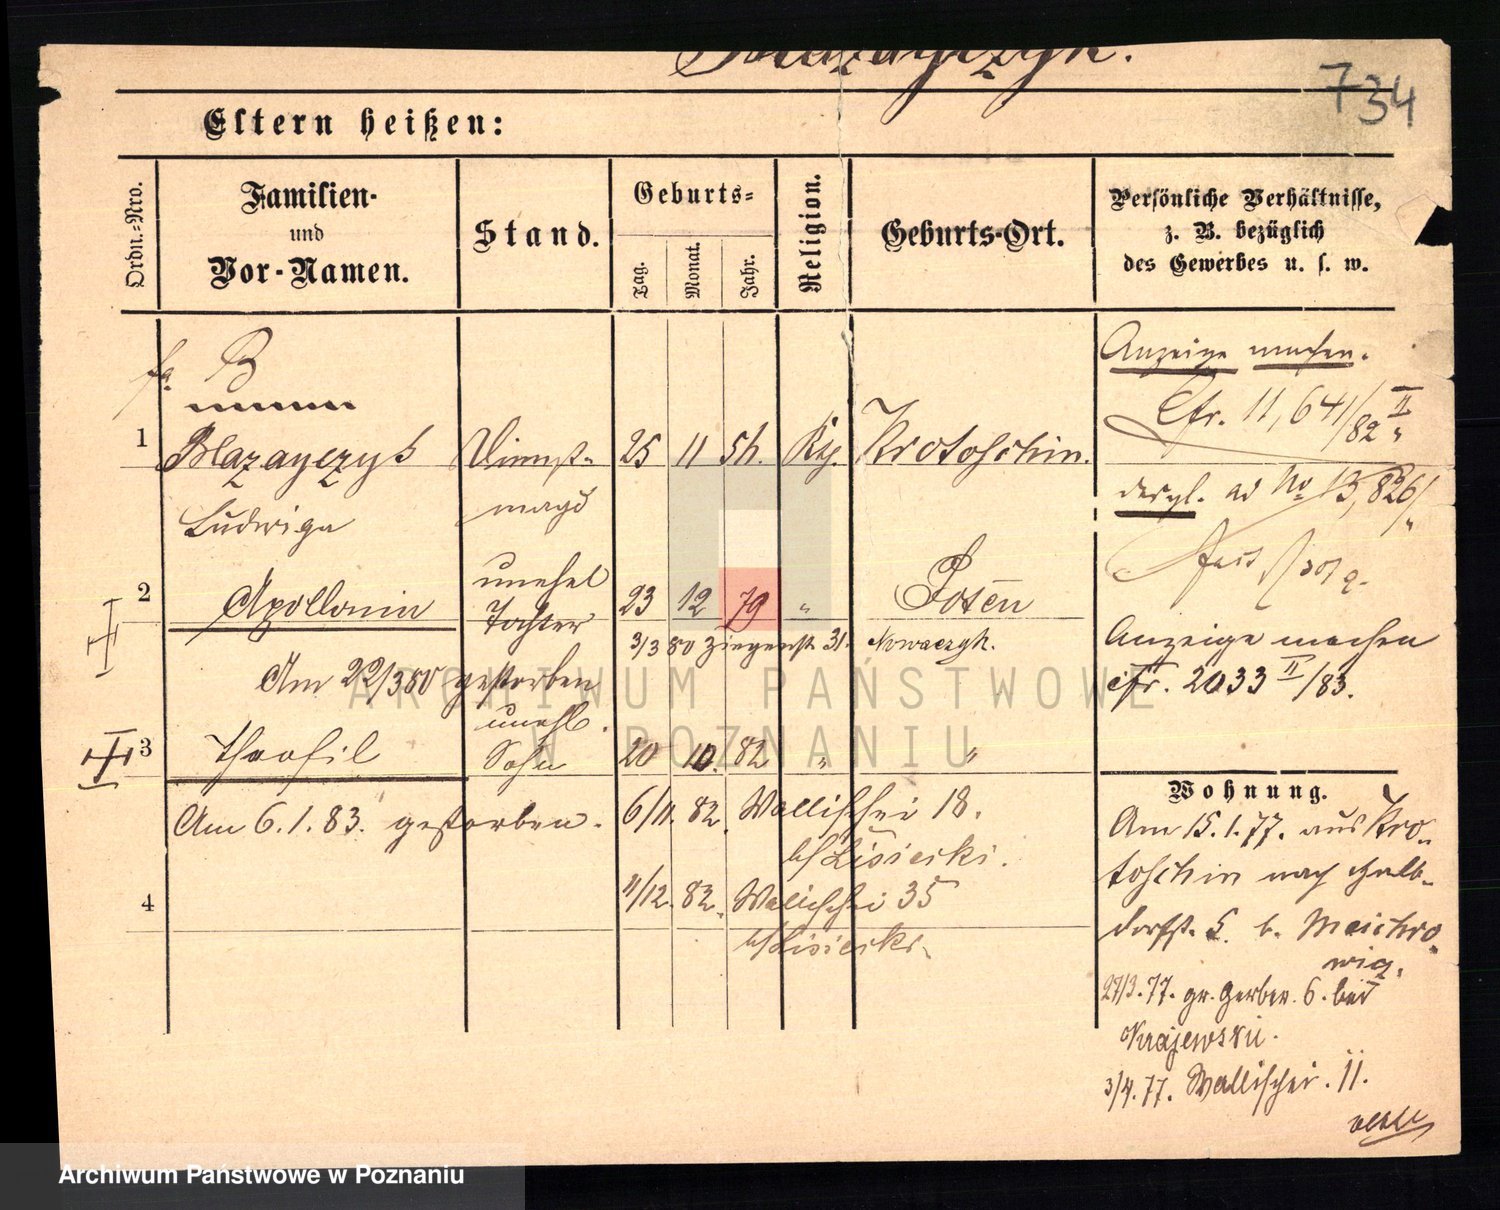 Błazayczyk.
734
Eltern heißen:
Ordn.-Nro.
Familien-
und
Vor-Namen.
Stand.
Geburts-
Tag.
Monat.
Jahr.
Religion.
Geburts-Ort.
Persönliche Verhältnisse,
z. B. bezüglich
des Gewerbes u. s. w.
B
1
Blazayczyk Dienst- 25 11 54. Kth. Krotoschin.
Ludwiga magd
2
Apollonia unehel Tochter 23 12 79 " Posen
3/3 80 Ziegenstr. 31. Nowaczyk.
Am 22/3 80 gestorben
3
Theofil unehl. Sohn 20 10. 82 " "
Am 6.1.83. gestorben.
6/11. 82. Wallischei 18.
b/ Lisiecki.
4
11/12. 82. Wallischei 35
b/ Lisiecki.
Anzeige machen.
Cfr. 11,641/82 II
desgl. ad No 13,826/
Anzeige machen
cfr. 2033 II/83.
Wohnung.
Am 15.1.77. aus Kro-
toschin nach Halb-
dorfstr. 5. b. Maichro-
wicz.
27/3.77. gr. Gerber. 6. bei
Krajewski.
3/4.77. Wallischei. 11.
verte
ARCHIWUM PAŃSTWOWE
W POZNANIU
Archiwum Państwowe w Poznaniu